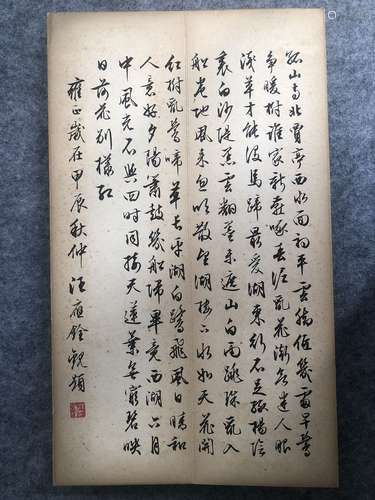 孤山寺北賈亭西水面初平雲腳低幾處早鶯
争暖樹誰家新燕啄春泥亂花漸欲迷人眼
淺草才能沒馬蹄最愛湖東行不足綠楊陰
裏白沙堤黑雲翻墨未遮山白雨跳珠亂入
船卷地風來忽吹散望湖樓下水如天花開
紅樹亂鶯啼草長平湖白鷺飛風日晴和
人意好夕陽簫鼓幾船歸畢竟西湖六月
中風光不與四時同接天蓮葉無窮碧映
日荷花別樣紅
雍正歲在甲辰秋仲汪應銓